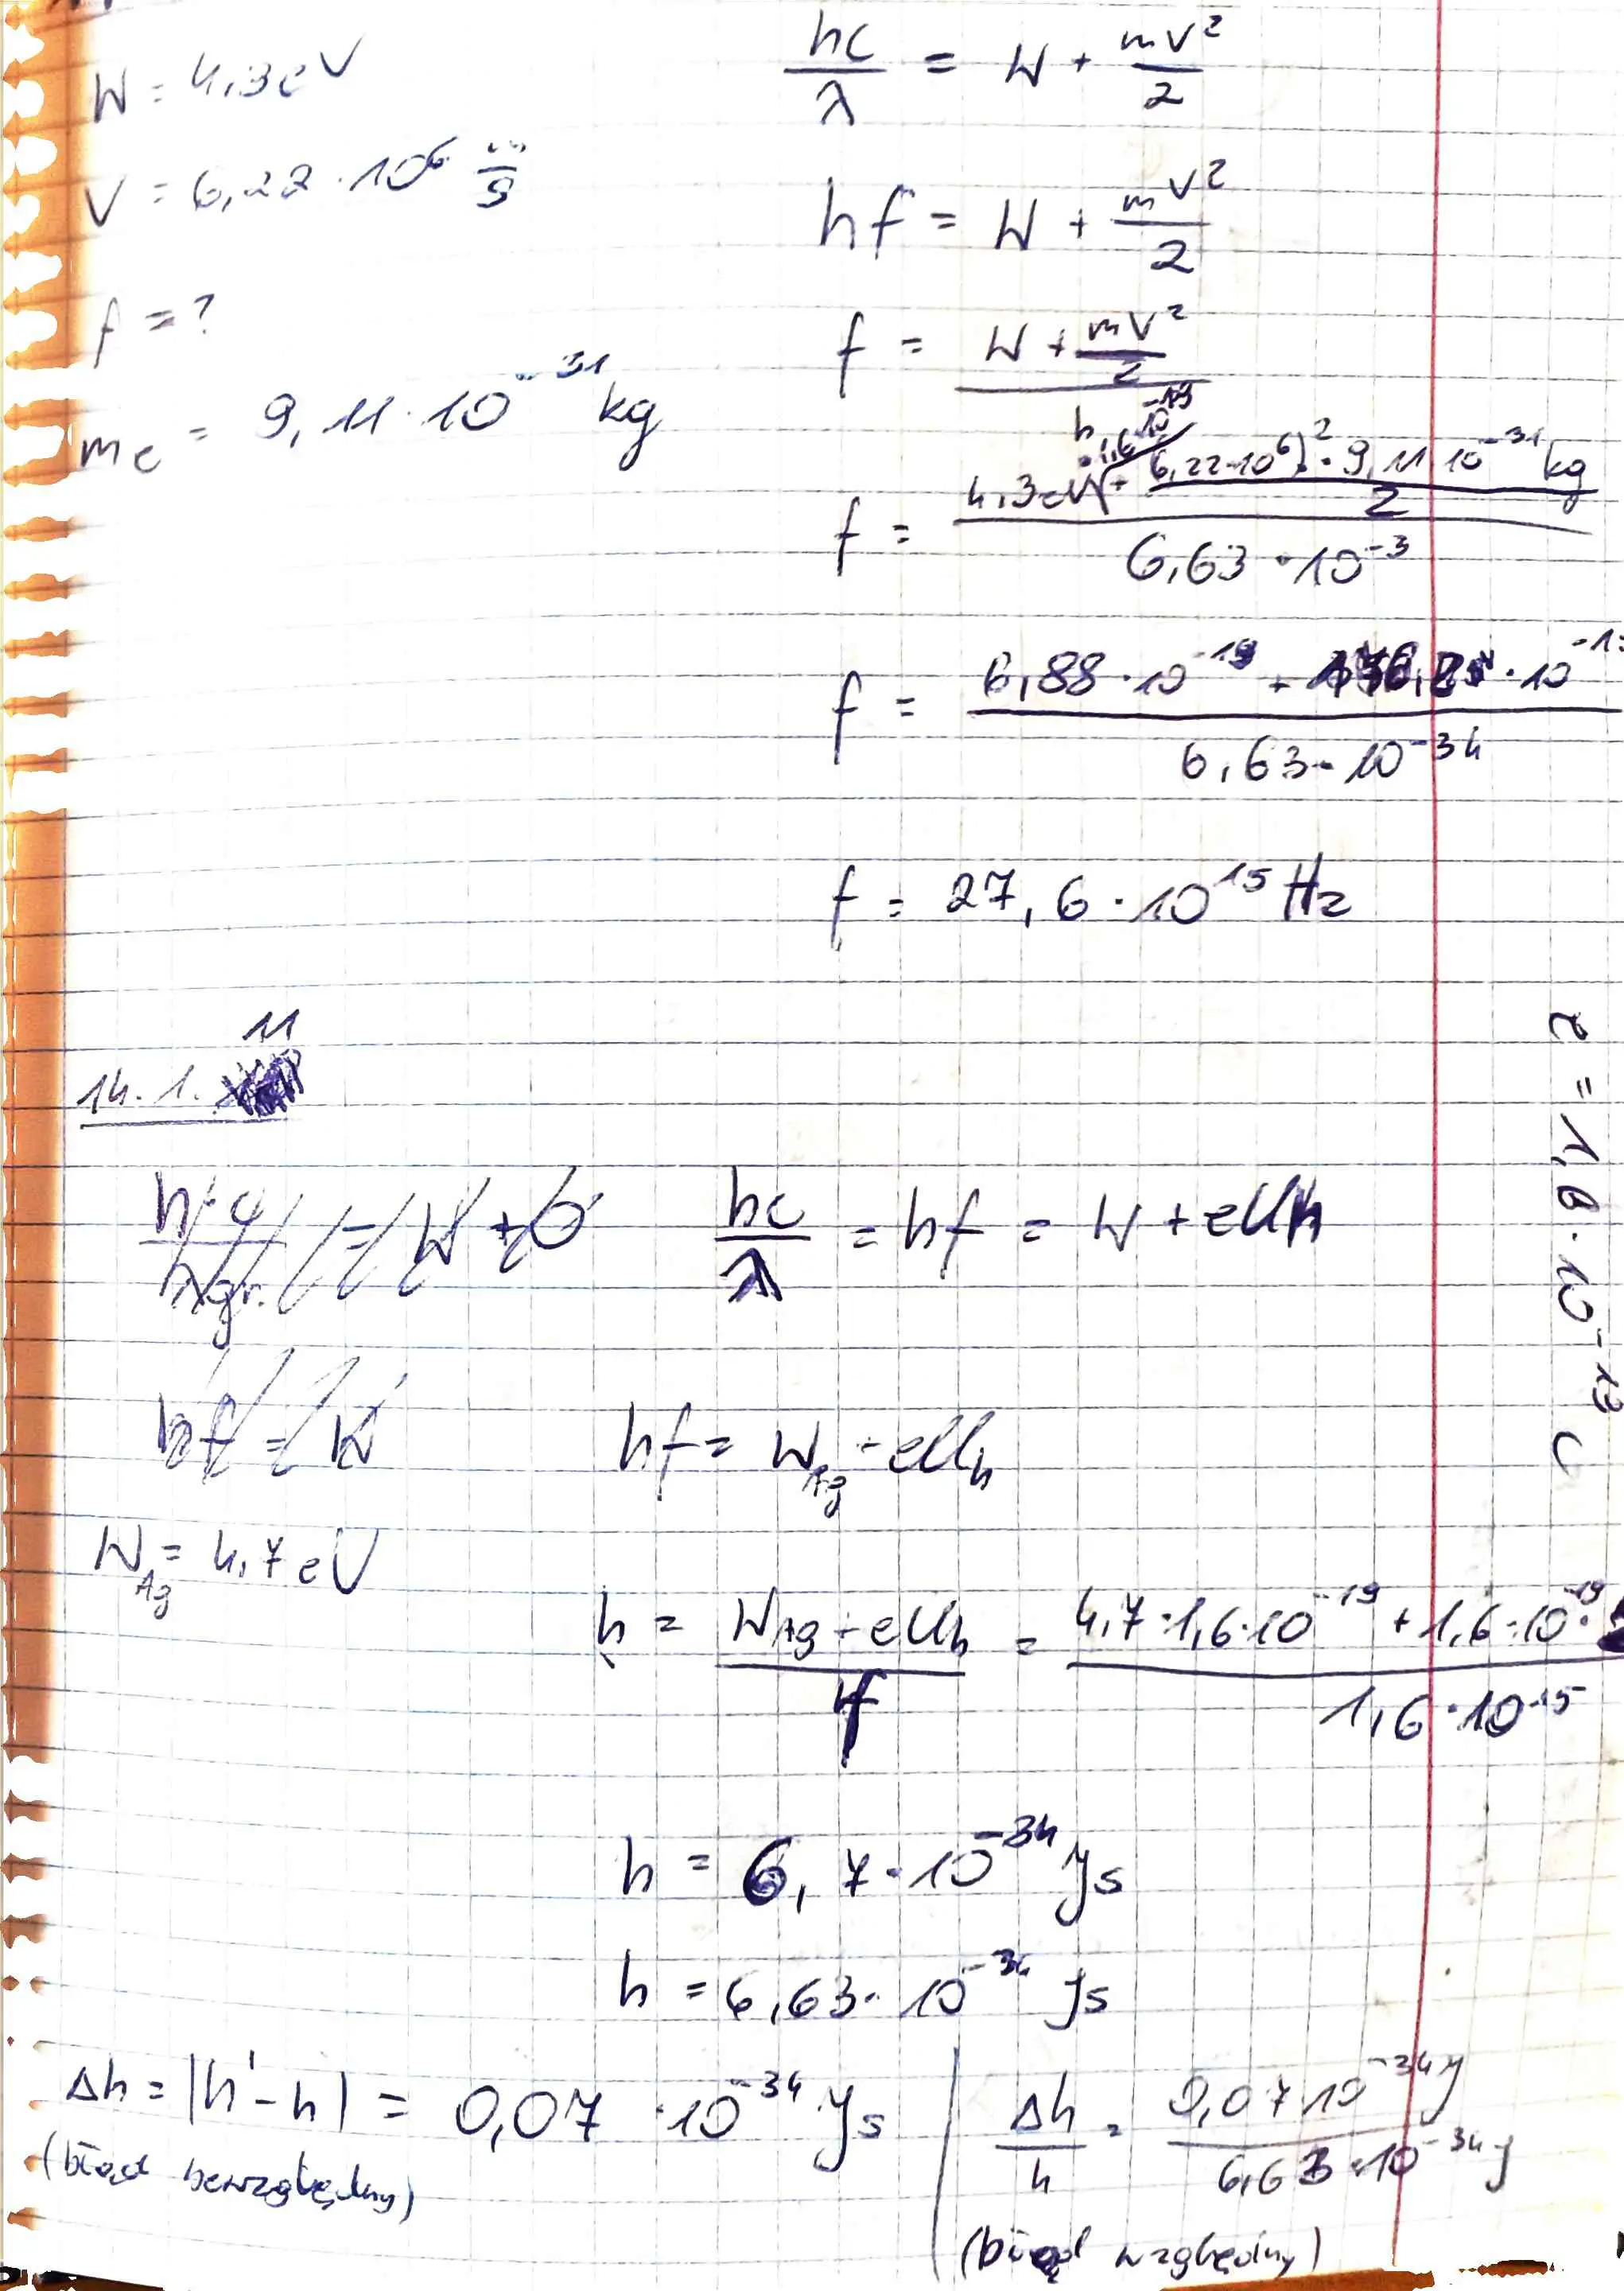 W = 4,3 eV
V = 6,22 · 10⁶ m/s
f = ?
mₑ = 9,11 · 10⁻³¹ kg
hc/λ = W + mv²/2
hf = W + mv²/2
f = (W + mv²/2)/h
f = (4,3eV · 1,6 · 10⁻¹⁹ + (6,22·10⁶)² · 9,11 · 10⁻³¹ kg/2)/(6,63 · 10⁻³
f = (6,88 · 10⁻¹⁹ + · 10⁻¹)/(6,63 · 10⁻³⁴)
f = 27,6 · 10¹⁵ Hz
14.1.11
e = 1,6 · 10⁻¹⁹ C
hc/λ = hf = W + eUh
hf = W_Ag + eUₕ
W_Ag = 4,7 eV
h = (W_Ag + eUₕ)/f = (4,7 · 1,6 · 10⁻¹⁹ + 1,6 · 10⁻¹⁹ ·)/(1,6 · 10¹⁵)
h = 6,7 · 10⁻³⁴ Js
h = 6,63 · 10⁻³⁴ Js
Δh = |h' - h| = 0,07 · 10⁻³⁴ Js
(błąd bezwzględny)
Δh/h = (0,07 · 10⁻³⁴ J)/(6,63 · 10⁻³⁴ J)
(błąd względny)